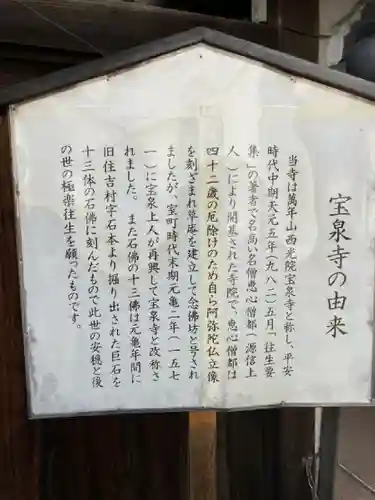 宝泉寺の由来
当寺は萬年山西光院宝泉寺と称し、平安
時代中期天元五年(九八二)五月「往生要
集」の著者で名高い名僧恵心僧都(源信上
人)により開基された寺院で、恵心僧都は
四十二歳の厄除けのため自ら阿弥陀仏立像
を刻ざまれ草庵を建立して念佛坊と号され
ましたが、室町時代末期元亀二年(一五七
一)に宝泉上人が再興して宝泉寺と改称さ
れました。また石佛の十三佛は元亀年間に
旧住吉村字石本より掘り出された巨石を
十三体の石佛に刻んだもので此世の安穏と後
の世の極楽往生を願ったものです。